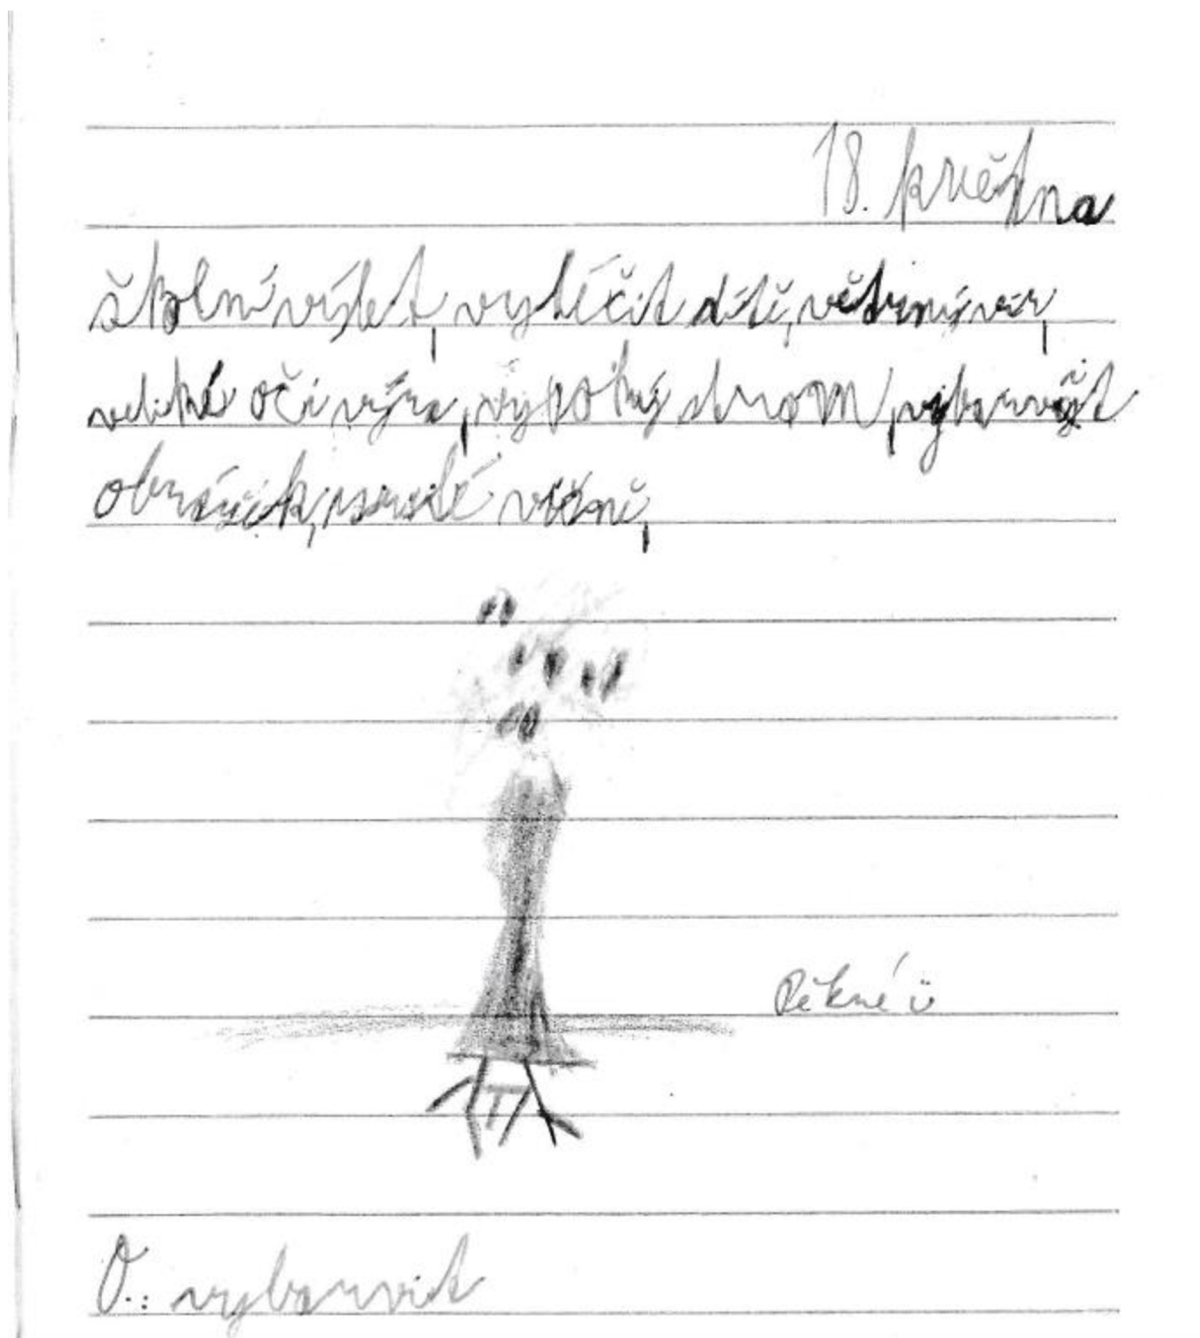 18. května
školní výlet, vyléčit dítě, větrný vír,
veliké oči výra, vysoký strom, vybarvit
obrázek,
Pěkné ü
O.: vybarvit